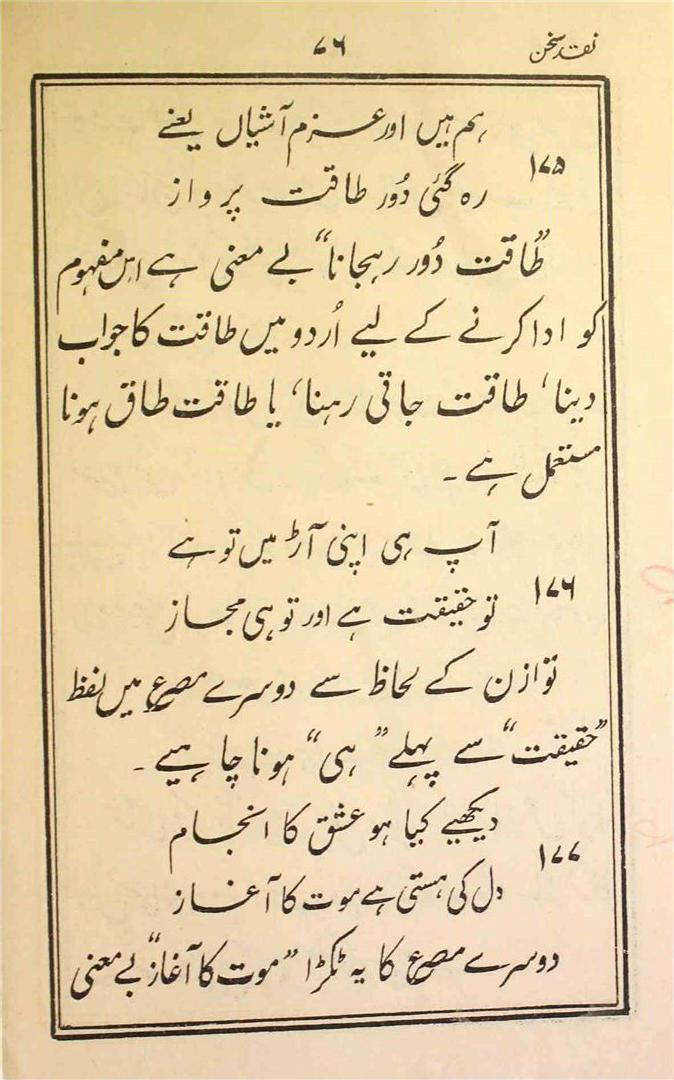 نقد سخن
۷۶
ہم ہیں اور عزم آشیاں یعنے
۱۷۵
رہ گئی دُور طاقت پرواز
”طاقت دُور رہجانا“ بے معنی ہے اس مفہوم
کو ادا کرنے کے لیے اُردو میں طاقت کا جواب
دینا‘ طاقت جاتی رہنا‘ یا طاقت طاق ہونا
مستعمل ہے ۔
آپ ہی اپنی آڑ میں تو ہے
۱۷۶
تو حقیقت ہے اور تو ہی مجاز
توازن کے لحاظ سے دوسرے مصرع میں لفظ
”حقیقت“ سے پہلے ”ہی“ ہونا چاہیے ۔
دیکھیے کیا ہو عشق کا انجام
۱۷۷
دل کی ہستی ہے موت کا آغاز
دوسرے مصرع کا یہ ٹکڑا ”موت کا آغاز“ بے معنی